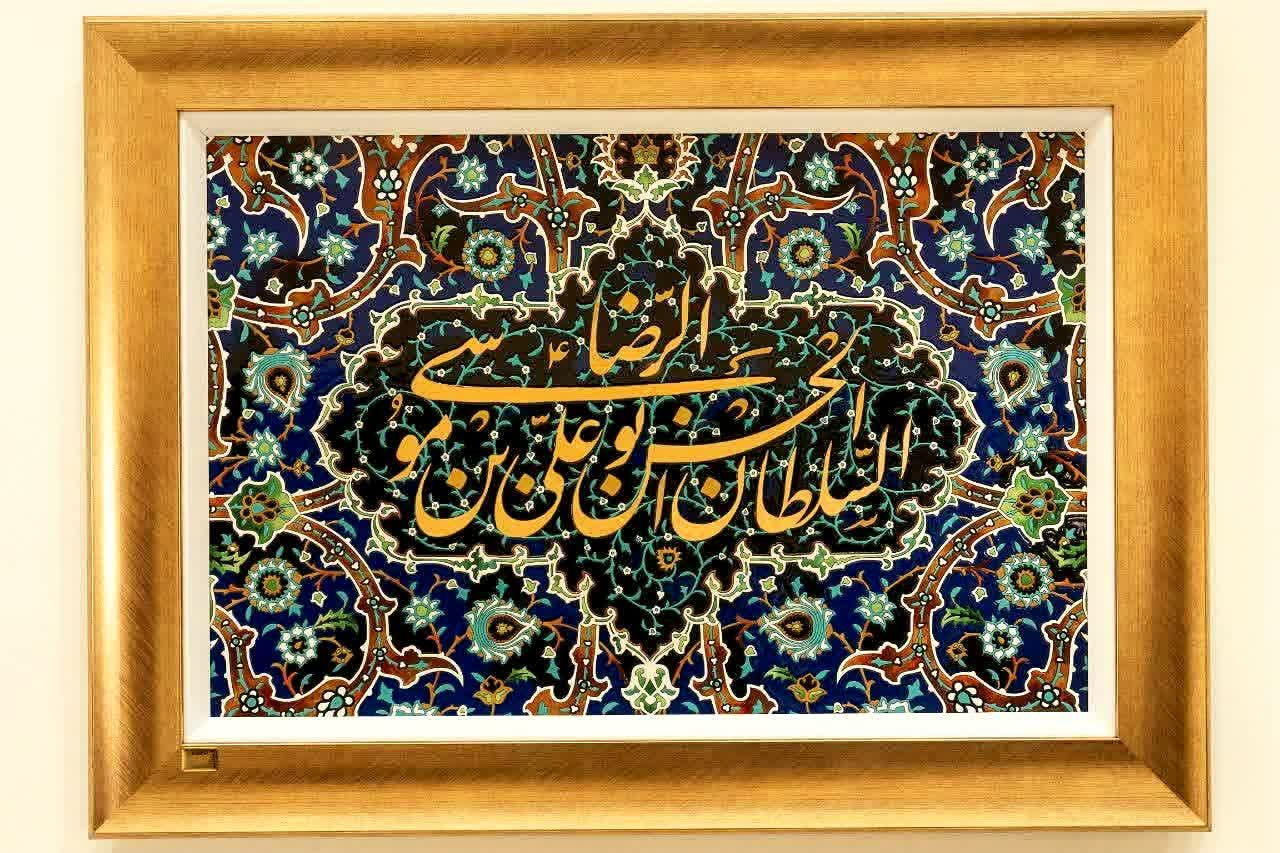 السّلطان ابوالحسن علیّ بن موُسی الرّضا ع